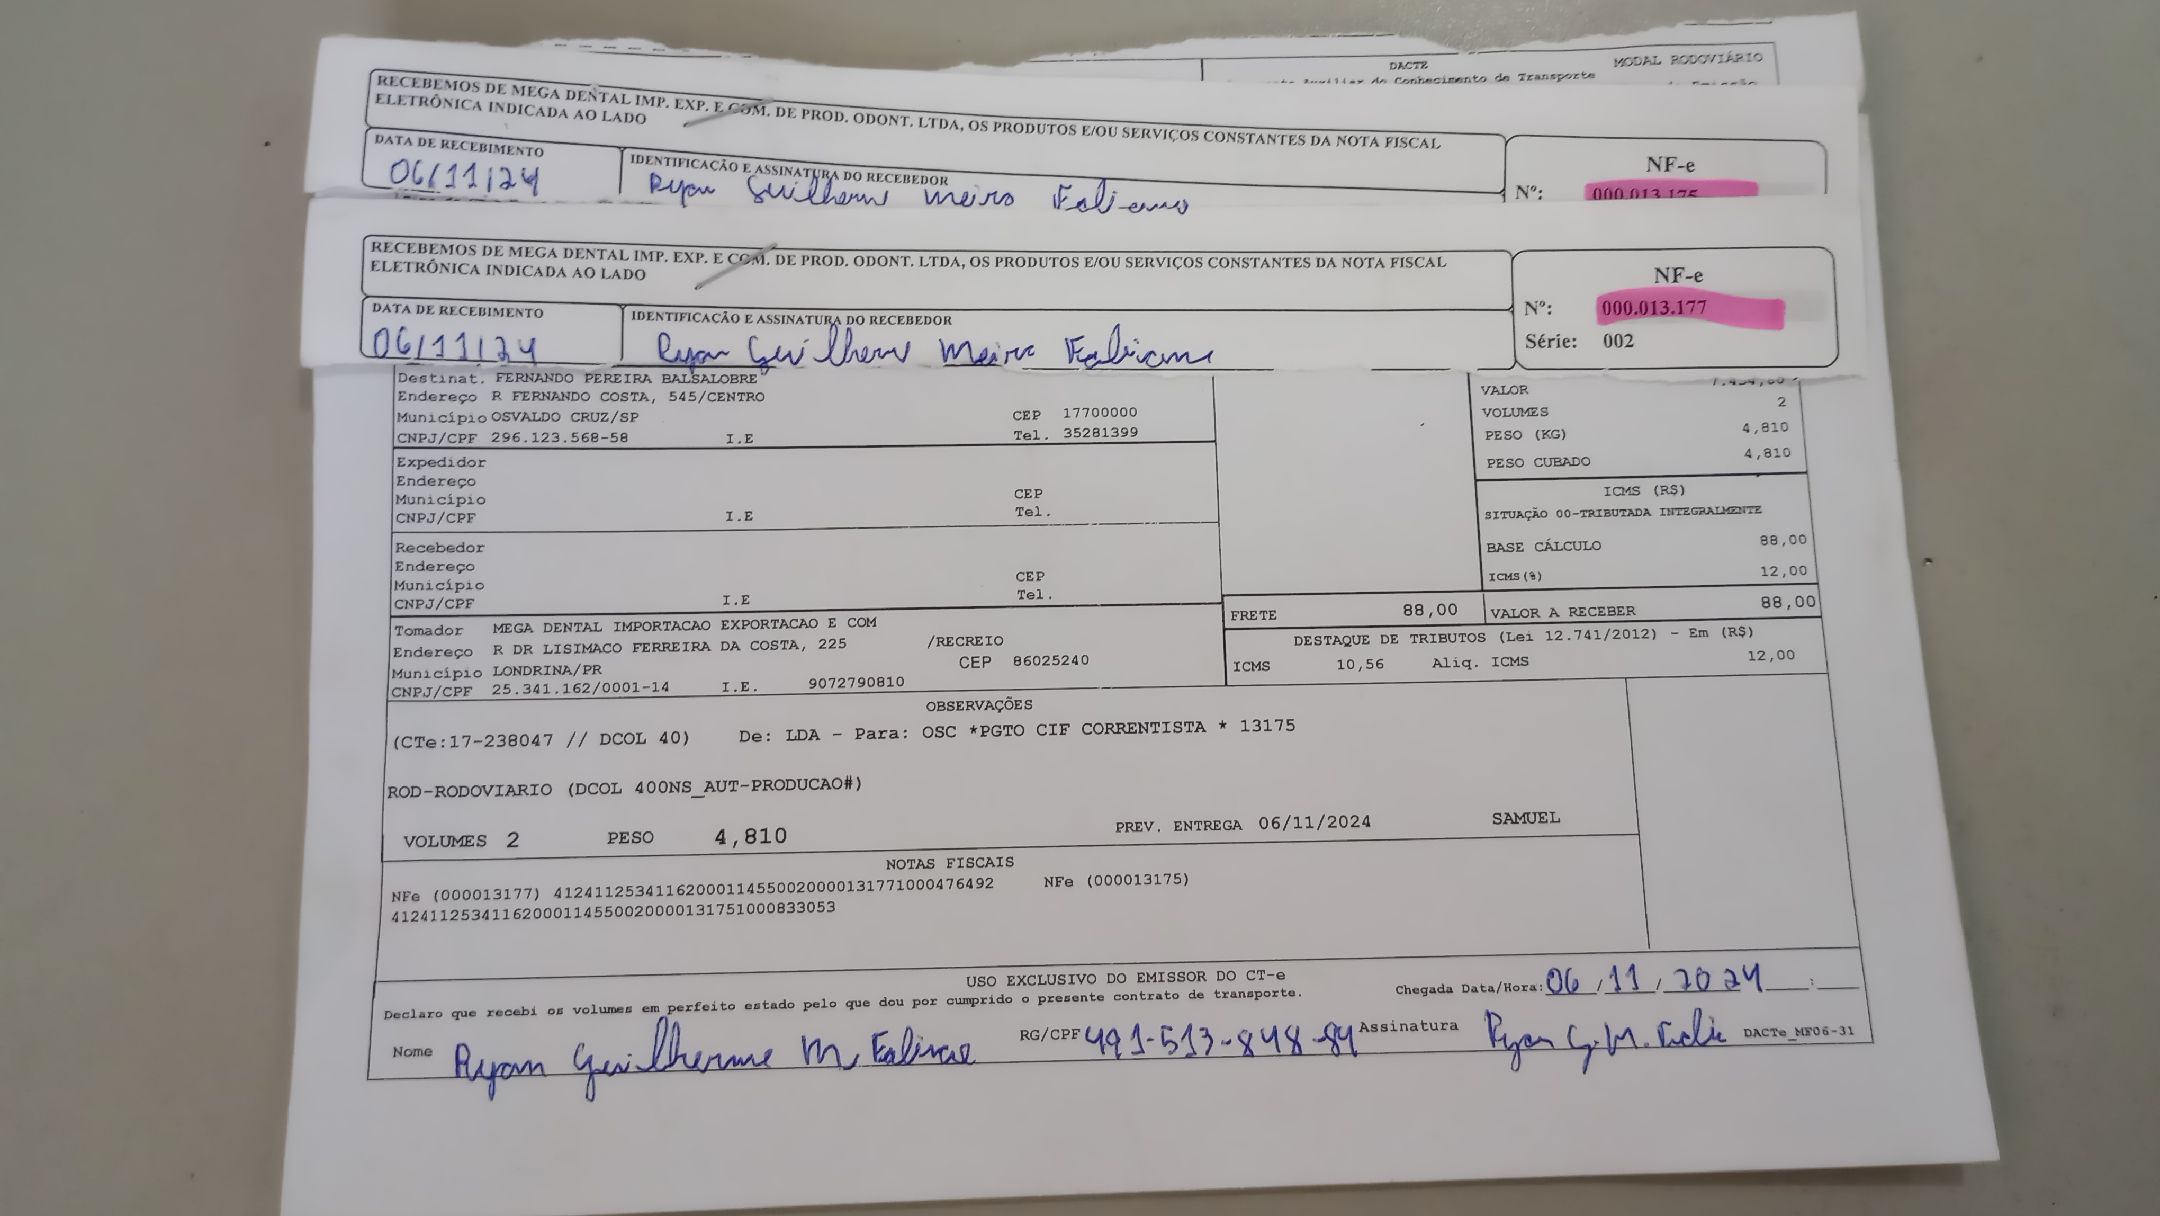 DACTE
MODAL RODOVIÁRIO
Auxiliar do Conhecimento de Transporte
RECEBEMOS DE MEGA DENTAL IMP. EXP. E COM. DE PROD. ODONT. LTDA, OS PRODUTOS E/OU SERVIÇOS CONSTANTES DA NOTA FISCAL
ELETRÔNICA INDICADA AO LADO
DATA DE RECEBIMENTO
IDENTIFICAÇÃO E ASSINATURA DO RECEBEDOR
NF-e
06/11/24
Ryan Guilherme Meira Fabiano
Nº: 000.013.175
RECEBEMOS DE MEGA DENTAL IMP. EXP. E COM. DE PROD. ODONT. LTDA, OS PRODUTOS E/OU SERVIÇOS CONSTANTES DA NOTA FISCAL
ELETRÔNICA INDICADA AO LADO
NF-e
DATA DE RECEBIMENTO
IDENTIFICAÇÃO E ASSINATURA DO RECEBEDOR
Nº: 000.013.177
06/11/24
Ryan Guilherme Meira Fabiano
Série: 002
Destinat. FERNANDO PEREIRA BALSALOBRE
Endereço R FERNANDO COSTA, 545/CENTRO
Município OSVALDO CRUZ/SP CEP 17700000
CNPJ/CPF 296.123.568-58 I.E Tel. 35281399
VALOR
VOLUMES 2
PESO (KG) 4,810
PESO CUBADO 4,810
Expedidor
Endereço
Município CEP
CNPJ/CPF I.E Tel.
ICMS (R$)
SITUAÇÃO 00-TRIBUTADA INTEGRALMENTE
BASE CÁLCULO 88,00
ICMS(%) 12,00
Recebedor
Endereço
Município CEP
CNPJ/CPF I.E Tel.
FRETE 88,00 VALOR A RECEBER 88,00
Tomador MEGA DENTAL IMPORTACAO EXPORTACAO E COM
Endereço R DR LISIMACO FERREIRA DA COSTA, 225 /RECREIO
Município LONDRINA/PR CEP 86025240
CNPJ/CPF 25.341.162/0001-14 I.E. 9072790810
DESTAQUE DE TRIBUTOS (Lei 12.741/2012) - Em (R$)
ICMS 10,56 Aliq. ICMS 12,00
OBSERVAÇÕES
(CTe:17-238047 // DCOL 40) De: LDA - Para: OSC *PGTO CIF CORRENTISTA * 13175
ROD-RODOVIARIO (DCOL 400NS_AUT-PRODUCAO#)
VOLUMES 2 PESO 4,810 PREV. ENTREGA 06/11/2024 SAMUEL
NOTAS FISCAIS
NFe (000013177) 41241125341162000114550020000131771000476492 NFe (000013175)
41241125341162000114550020000131751000833053
USO EXCLUSIVO DO EMISSOR DO CT-e
Declaro que recebi os volumes em perfeito estado pelo que dou por cumprido o presente contrato de transporte.
Chegada Data/Hora: 06/11/2024 :
Nome Ryan Guilherme M Fabiano RG/CPF 491-513-848-84 Assinatura Ryan G. M. DACTe_MF06-31